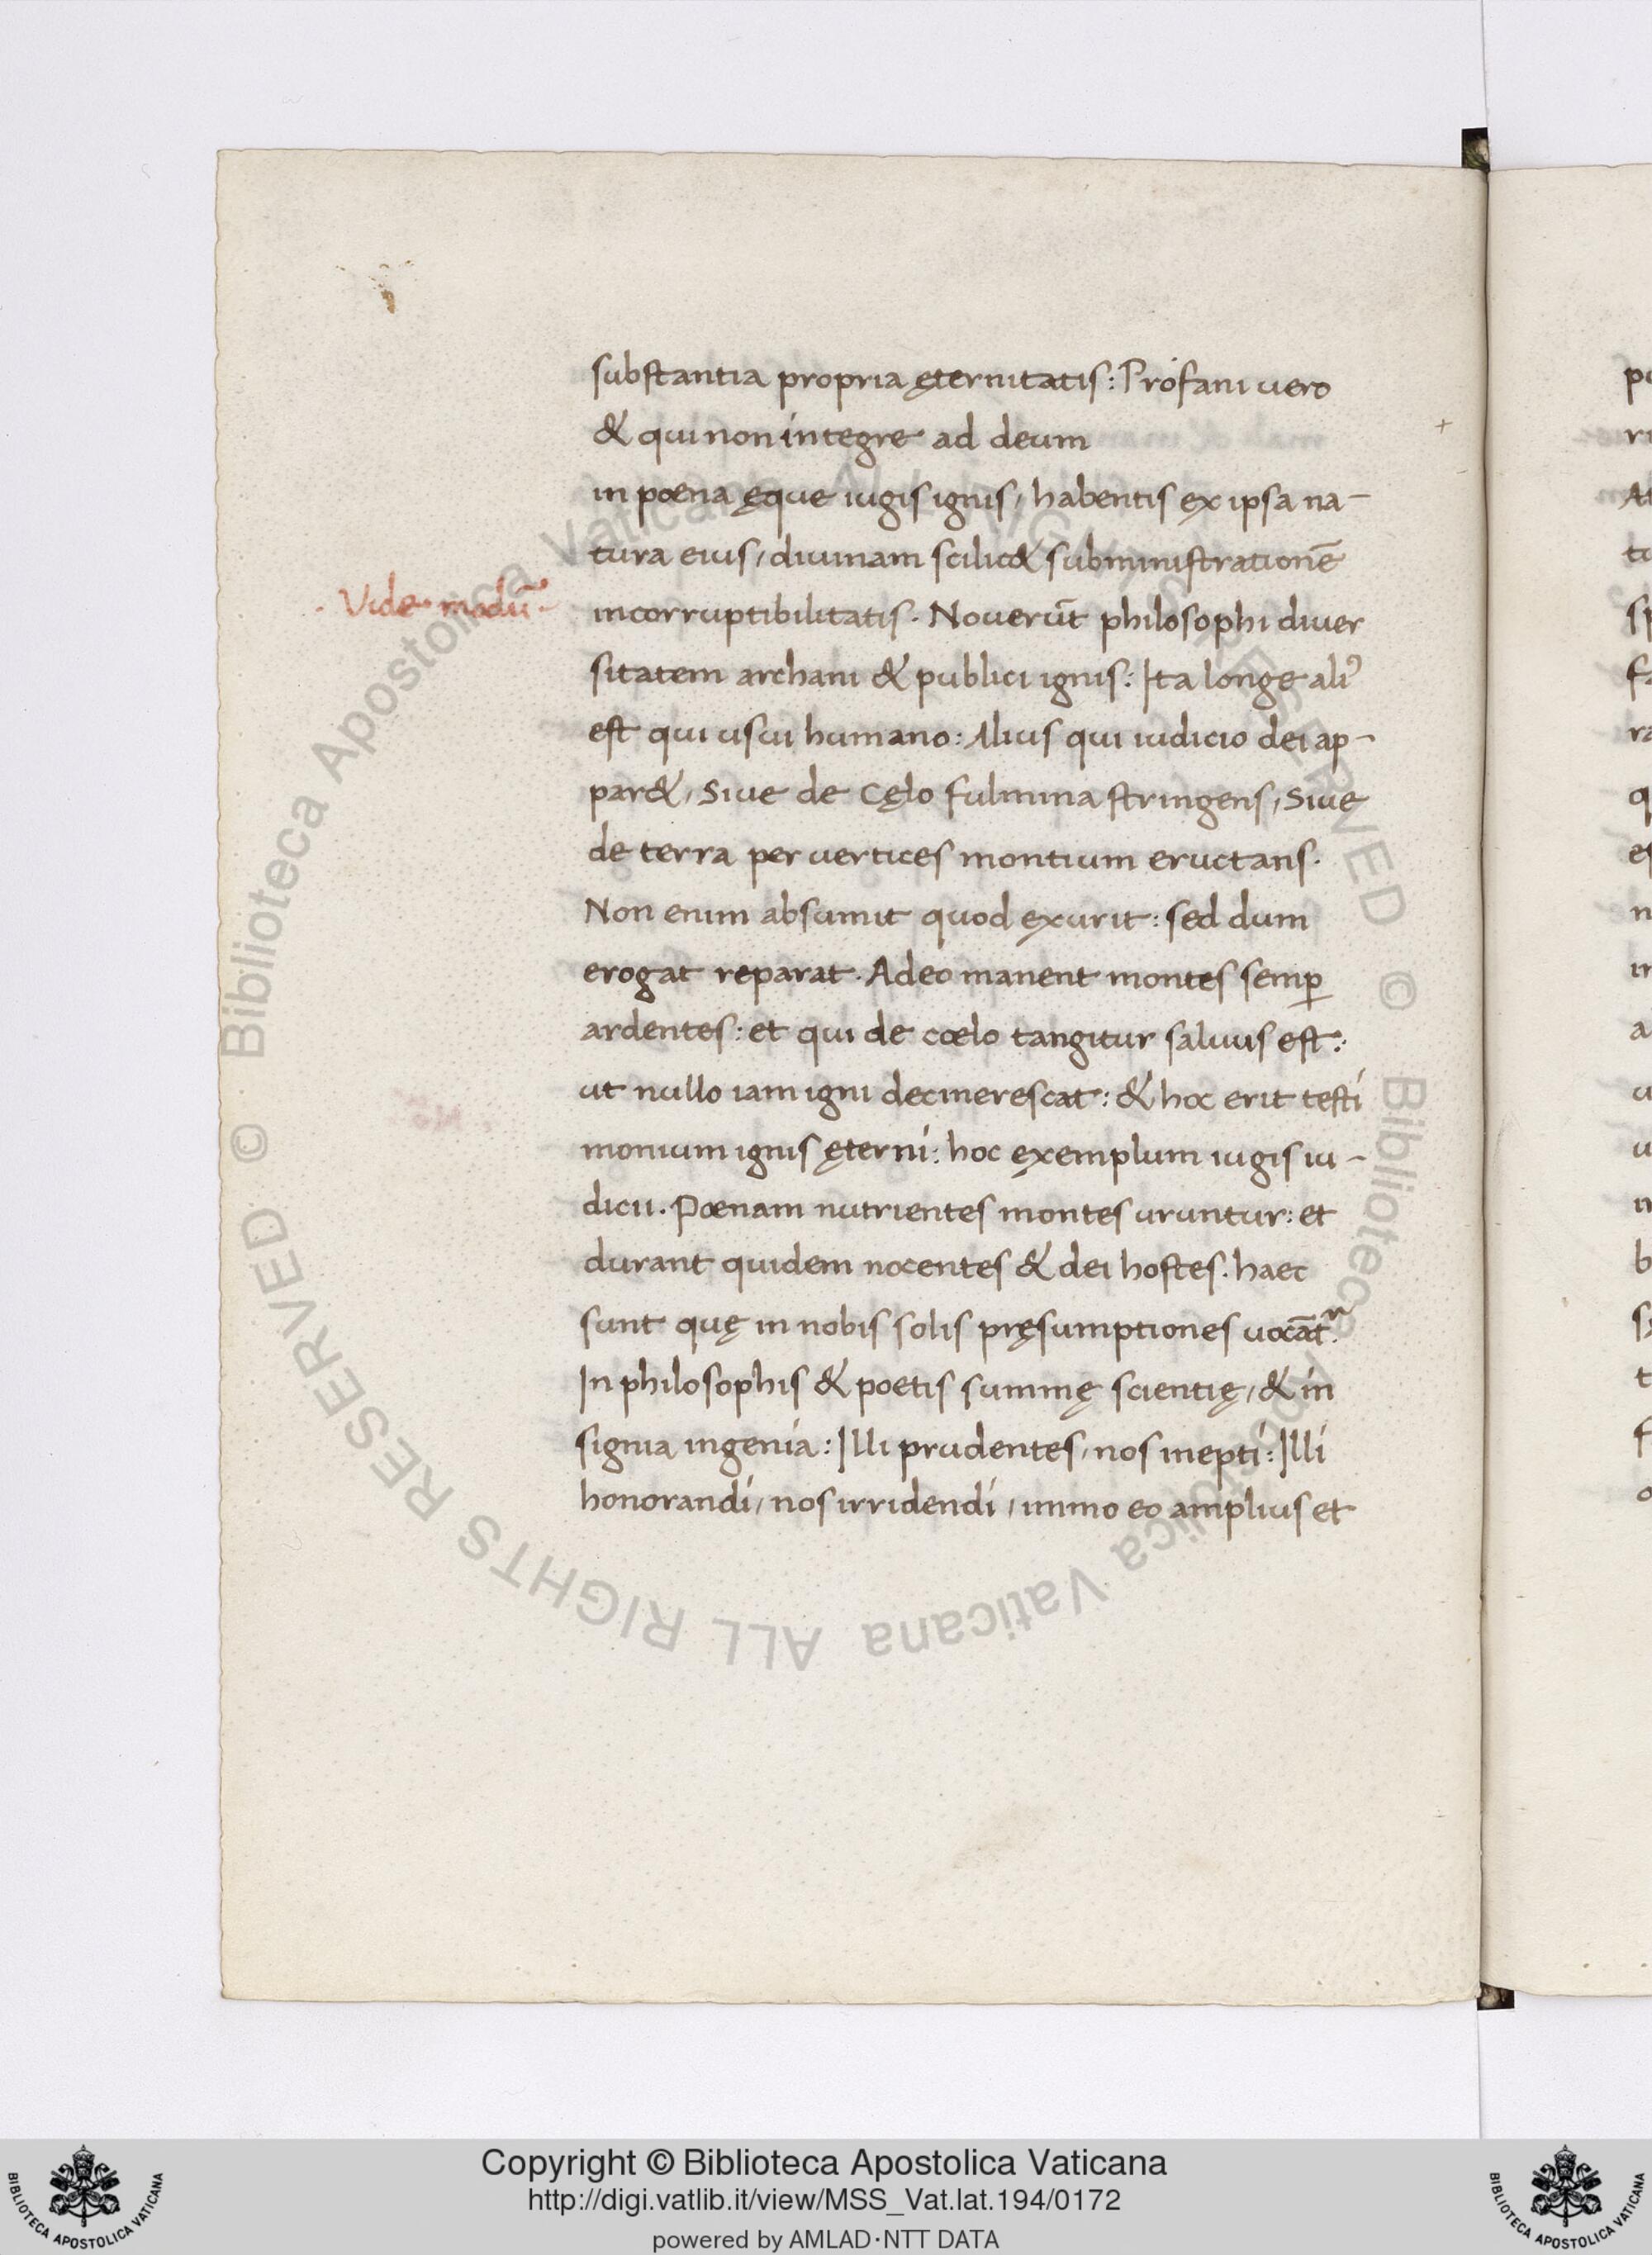 substantia propria ęternitatis: Profani vero
& qui non integre ad deum
in poena ęque iugis ignis, habentis ex ipsa na-
tura eius, diuinam scilic& subministrationē
· Vide modū ·
incorruptibilitatis. Nouerūt philosophi diuer
sitatem archani & publici ignis: Ita longe ali᾽
est qui usui humano: Alius qui iudicio dei ap-
par&, Siue de Cęlo fulmina stringens, Siue
de terra per uertices montium eructans.
Non enim absumit quod exurit: sed dum
erogat reparat. Adeo manent montes semꝑ
ardentes: et qui de cœlo tangitur saluus est:
ut nullo iam igni decinerescat: & hoc erit testi
monium ignis ęterni: hoc exemplum iugis iu-
dicii. Pœnam nutrientes montes uruntur: et
durant quidem nocentes & dei hostes. haec
sunt quę in nobis solis pręsumptiones uocātʳ.
In philosophis & poetis summę scientię, & in
signia ingenia: Illi prudentes, nos inepti: Illi
honorandi, nos irridendi, immo eo amplius et
© Biblioteca Apostolica Vaticana ALL RIGHTS RESERVED © Biblioteca Apostolica Vaticana ALL RIGHTS RESERVED
Copyright © Biblioteca Apostolica Vaticana
http://digi.vatlib.it/view/MSS_Vat.lat.194/0172
powered by AMLAD·NTT DATA
BIBLIOTECA APOSTOLICA VATICANA
BIBLIOTECA APOSTOLICA VATICANA